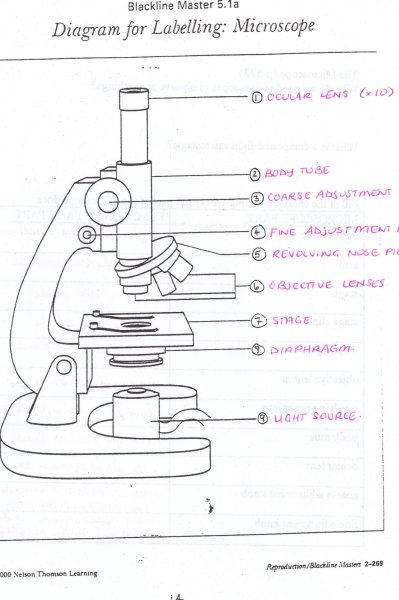 Blackline Master 5.1a
Diagram for Labelling: Microscope
① OCULAR LENS (×10)
② BODY TUBE
③ COARSE ADJUSTMENT
④ FINE ADJUSTMENT
⑤ REVOLVING NOSE PIE
⑥ OBJECTIVE LENSES
⑦ STAGE
⑧ DIAPHRAGM.
⑨ LIGHT SOURCE.
000 Nelson Thomson Learning
Reproduction/Blackline Masters 2-269